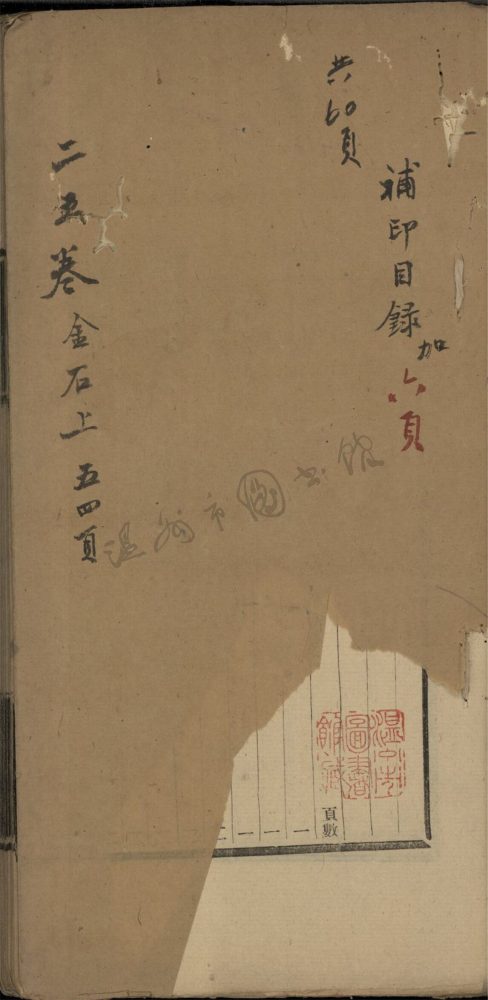 共60頁
補印目録加六頁
二五卷金石上五四頁
温州市圖书馆
温州市圖書館藏
頁數
一
一
一
二